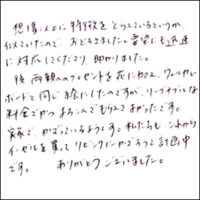 想像以上に特徴をとらえているというか、
似ていたので、おどろきました。要望にも迅速
に対応してくださり助かりました。
後、両親のプレゼントを花にかえ、ウェルカム
ボードと同じ絵にしたのですが、リーズナブルな
料金でかつよろこんでもらえてよかったです。
実家で、かざっているようです。私たちも、これから
イーゼルを買ってリビングにかざろうと計画中
です。 ありがとうございました。